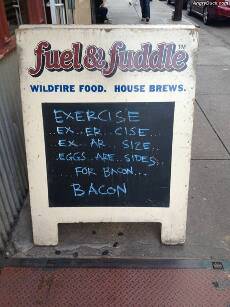 AngryClock.com
fuel & fuddle™
WILDFIRE FOOD. HOUSE BREWS.
EXERCISE
..EX..ER..CISE...
EX..AR..SIZE..
EGGS..ARE..SIDES..
..FOR BACON...
BACON